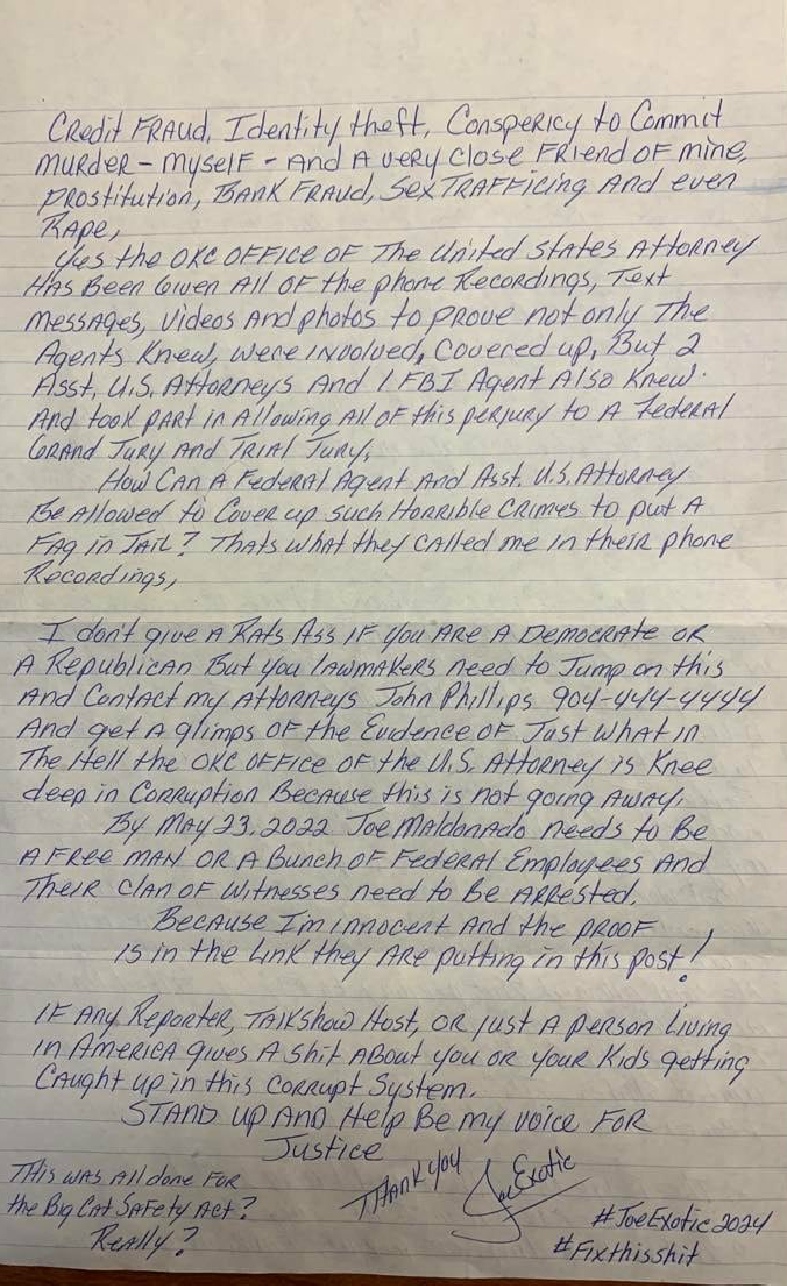 Credit Fraud, Identity theft, Conspericy to Commit
Murder - myself - And A very Close Friend of mine,
Prostitution, Bank Fraud, Sex Trafficing And even
Rape,
Yes the OKC Office of The United States Attorney
Has Been Given All of the phone Recordings, Text
Messages, Videos And photos to prove not only The
Agents Knew, were involved, Covered up, But 2
Asst. U.S. Attorneys And 1 FBI Agent Also Knew.
And took part in Allowing All of this perjury to A Federal
Grand Jury And Trial Jury,
How Can A Federal Agent And Asst. U.S. Attorney
Be Allowed to Cover up such Horrible Crimes to put A
Fag in Jail? Thats what they called me in their phone
Recordings,
I don't give A Rats Ass if you Are A Democrate or
A Republican But you lawmakers need to Jump on this
And Contact my Attorneys John Phillips 904-444-4444
And get A glimps of the Evidence of Just what in
The Hell the OKC Office of the U.S. Attorney is Knee
deep in Corruption Because this is not going Away.
By May 23, 2022 Joe Maldonado needs to Be
A Free man or A Bunch of Federal Employees And
Their Clan of Witnesses need to Be Arrested.
Because I'm innocent And the Proof
is in the Link they Are putting in this post!
If Any Reporter, Talkshow Host, or just A person Living
in America gives A shit About you or your Kids getting
Caught up in this Corrupt System.
Stand up And Help Be my voice For
Justice
Thank you Joe Exotic
This was All done For
the Big Cat Safety Act?
Really?
#JoeExotic2024
#Fixthisshit